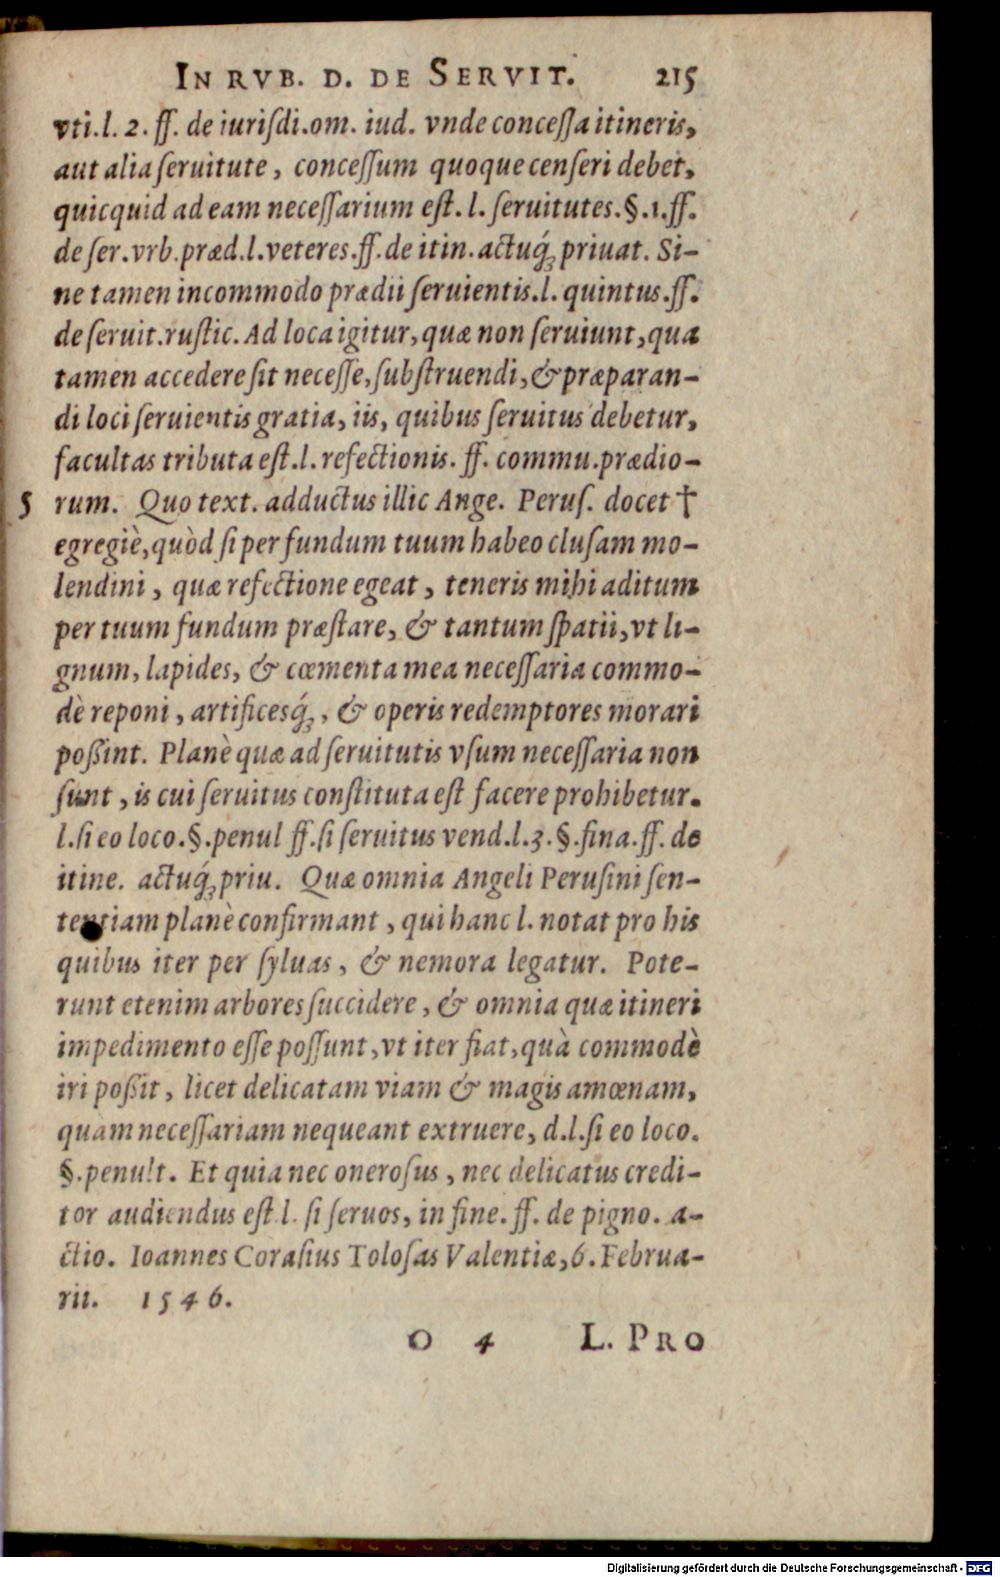 IN RVB. D. DE SERVIT. 215
vti.l. 2. ff. de iuriſdi.om. iud. vnde conceſſa itineris,
aut alia ſeruitute, conceſſum quoque cenſeri debet,
quicquid ad eam neceſſarium eſt. l. ſeruitutes.§.1.ff.
de ſer.vrb.præd.l.veteres.ff.de itin.actuq́ꝫ priuat. Si-
ne tamen incommodo prædii ſeruientis.l. quintus.ff.
de ſeruit.ruſtic. Ad loca igitur, quæ non ſeruiunt, qua
tamen accedere ſit neceſſe, ſubſtruendi, & præparan-
di loci ſeruientis gratia, iis, quibus ſeruitus debetur,
facultas tributa eſt.l. refectionis. ff. commu.prædio-
5 rum. Quo text. adductus illic Ange. Peruſ. docet †
egregiè, quòd ſi per fundum tuum habeo cluſam mo-
lendini, quæ refectione egeat, teneris mihi aditum
per tuum fundum præſtare, & tantum ſpatii, vt li-
gnum, lapides, & cœmenta mea neceſſaria commo-
dè reponi, artificesq́ꝫ, & operis redemptores morari
poßint. Planè quæ ad ſeruitutis vſum neceſſaria non
ſunt, is cui ſeruitus conſtituta eſt facere prohibetur.
l.ſi eo loco.§.penul ff.ſi ſeruitus vend.l.3.§.fina.ff. de
itine. actuq́ꝫ priu. Quæ omnia Angeli Peruſini ſen-
tentiam planè confirmant, qui hanc l. notat pro his
quibus iter per ſyluas, & nemora legatur. Pote-
runt etenim arbores ſuccidere, & omnia quæ itineri
impedimento eſſe poſſunt, vt iter fiat, quà commodè
iri poßit, licet delicatam viam & magis amœnam,
quàm neceſſariam nequeant extruere, d.l.ſi eo loco.
§.penult. Et quia nec oneroſus, nec delicatus credi-
tor audiendus eſt l. ſi ſeruos, in fine. ff. de pigno. a-
ctio. Ioannes Coraſius Toloſas Valentiæ, 6. Februa-
rii. 1546.
O 4 L. PRO
Digitalisierung gefördert durch die Deutsche Forschungsgemeinschaft - DFG